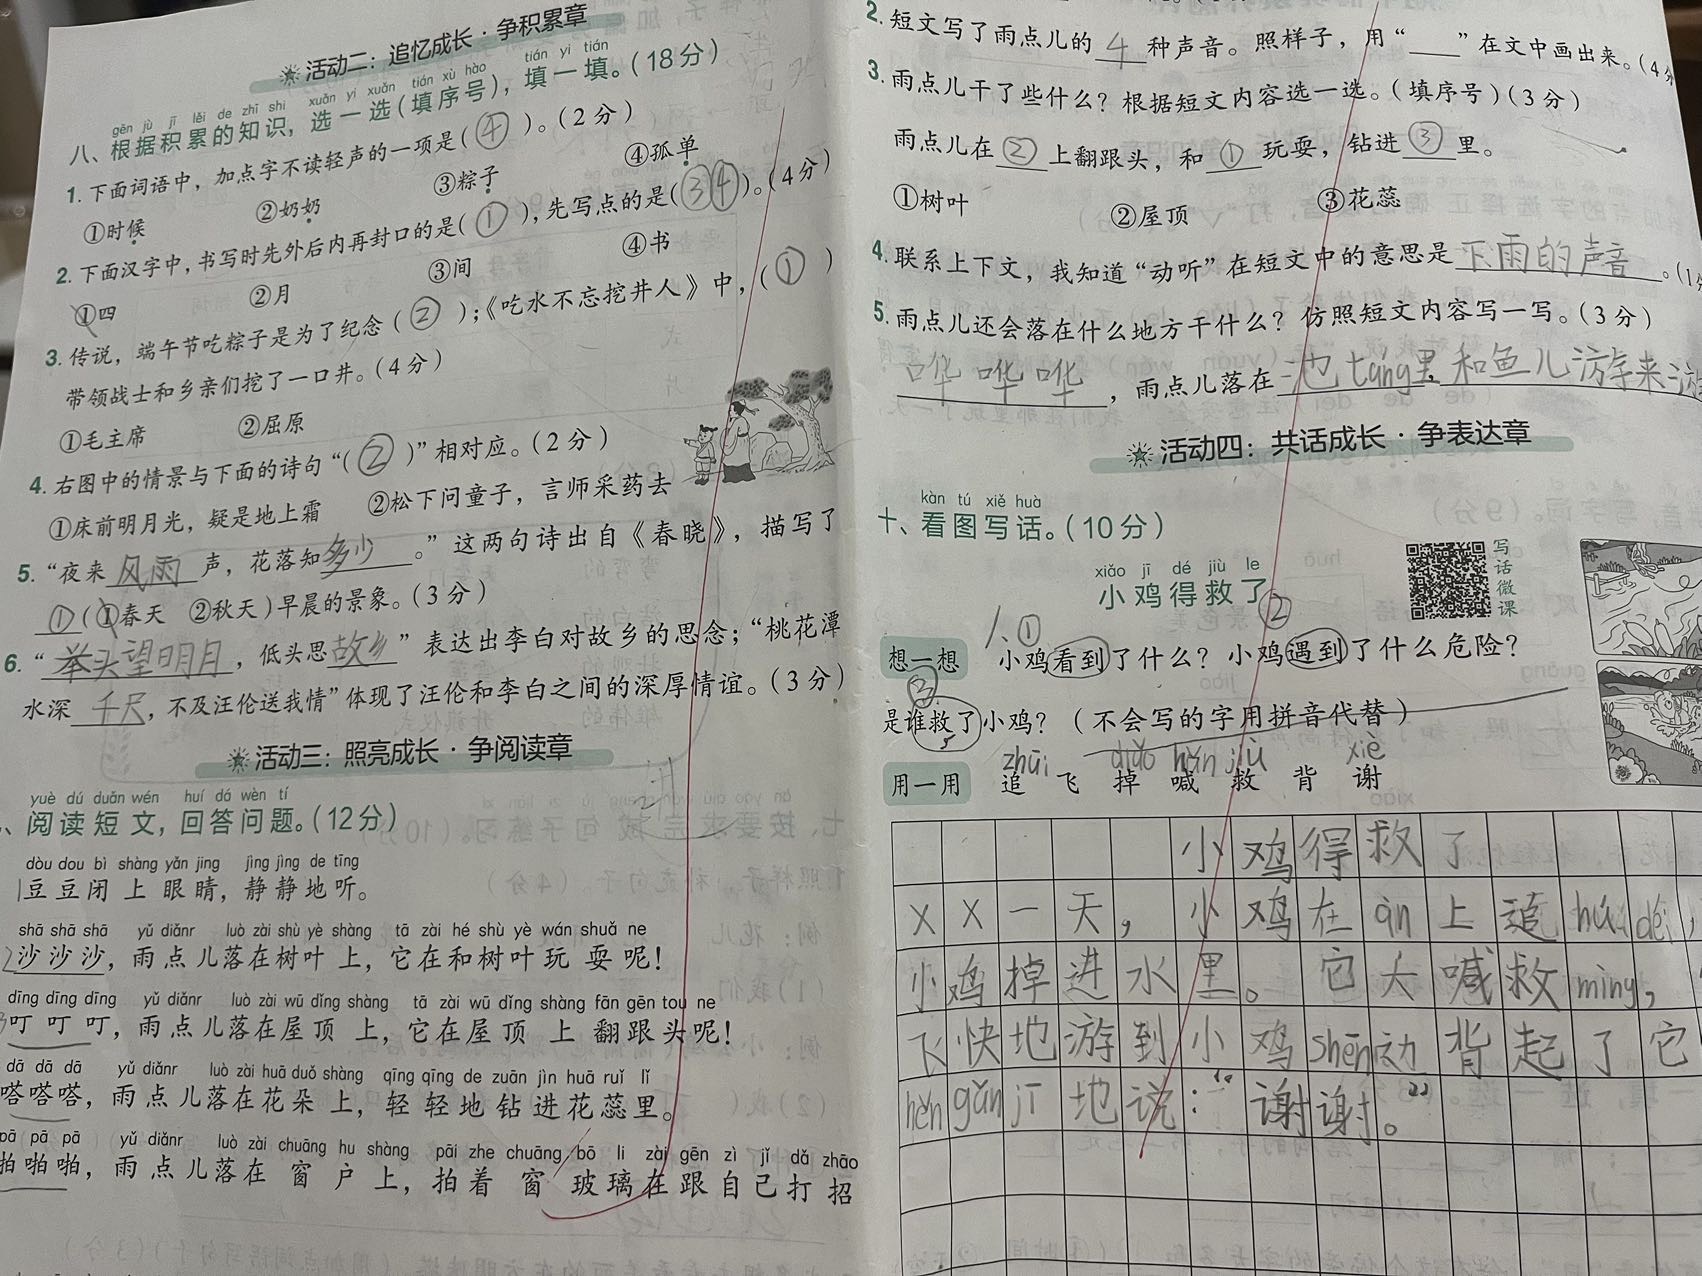 活动二：追忆成长·争积累章
gēn jù jī lěi de zhī shi xuǎn yi xuǎn tián xù hào tián yi tián
八、根据积累的知识，选一选（填序号），填一填。（18分）
1. 下面词语中，加点字不读轻声的一项是（④）。（2分）
①时候 ②奶奶 ③粽子 ④孤单
2. 下面汉字中，书写时先外后内再封口的是（①），先写点的是（③④）。（4分）
①四 ②月 ③间 ④书
3. 传说，端午节吃粽子是为了纪念（②）；《吃水不忘挖井人》中，（①）
带领战士和乡亲们挖了一口井。（4分）
①毛主席 ②屈原
4. 右图中的情景与下面的诗句“（②）”相对应。（2分）
①床前明月光，疑是地上霜 ②松下问童子，言师采药去
5. “夜来风雨声，花落知多少。”这两句诗出自《春晓》，描写了
①（①春天 ②秋天）早晨的景象。（3分）
6. “举头望明月，低头思故乡”表达出李白对故乡的思念；“桃花潭
水深千尺，不及汪伦送我情”体现了汪伦和李白之间的深厚情谊。（3分）
活动三：照亮成长·争阅读章
yuè dú duǎn wén huí dá wèn tí
、阅读短文，回答问题。（12分）
dòu dou bì shàng yǎn jing jìng jìng de tīng
豆豆闭上眼睛，静静地听。
shā shā shā yǔ diǎnr luò zài shù yè shàng tā zài hé shù yè wán shuǎ ne
沙沙沙，雨点儿落在树叶上，它在和树叶玩耍呢！
dīng dīng dīng yǔ diǎnr luò zài wū dǐng shàng tā zài wū dǐng shàng fān gēn tou ne
叮叮叮，雨点儿落在屋顶上，它在屋顶上翻跟头呢！
dā dā dā yǔ diǎnr luò zài huā duǒ shàng qīng qīng de zuān jìn huā ruǐ lǐ
嗒嗒嗒，雨点儿落在花朵上，轻轻地钻进花蕊里。
pā pā pā yǔ diǎnr luò zài chuāng hu shàng pāi zhe chuāng bō li zài gēn zì jǐ dǎ zhāo
啪啪啪，雨点儿落在窗户上，拍着窗玻璃在跟自己打招
2. 短文写了雨点儿的4种声音。照样子，用“___”在文中画出来。（4分
3. 雨点儿干了些什么？根据短文内容选一选。（填序号）（3分）
雨点儿在②上翻跟头，和①玩耍，钻进③里。
①树叶 ②屋顶 ③花蕊
4. 联系上下文，我知道“动听”在短文中的意思是下雨的声音。（1分
5. 雨点儿还会落在什么地方干什么？仿照短文内容写一写。（3分）
哗哗哗，雨点儿落在池táng里和鱼儿游来游
活动四：共话成长·争表达章
kàn tú xiě huà
十、看图写话。（10分）
写话微课
xiǎo jī dé jiù le
小鸡得救了
1、① ②
想一想 小鸡看到了什么？小鸡遇到了什么危险？
③
是谁救了小鸡？（不会写的字用拼音代替）
zhuī diào hǎn jiù xiè
用一用 追 飞 掉 喊 救 背 谢
小鸡得救了
XX一天，小鸡在àn上追hú dié，
小鸡掉进水里。它大喊救mìng，
飞快地游到小鸡shēn边背起了它
hěn gǎn jī地说：“谢谢。”